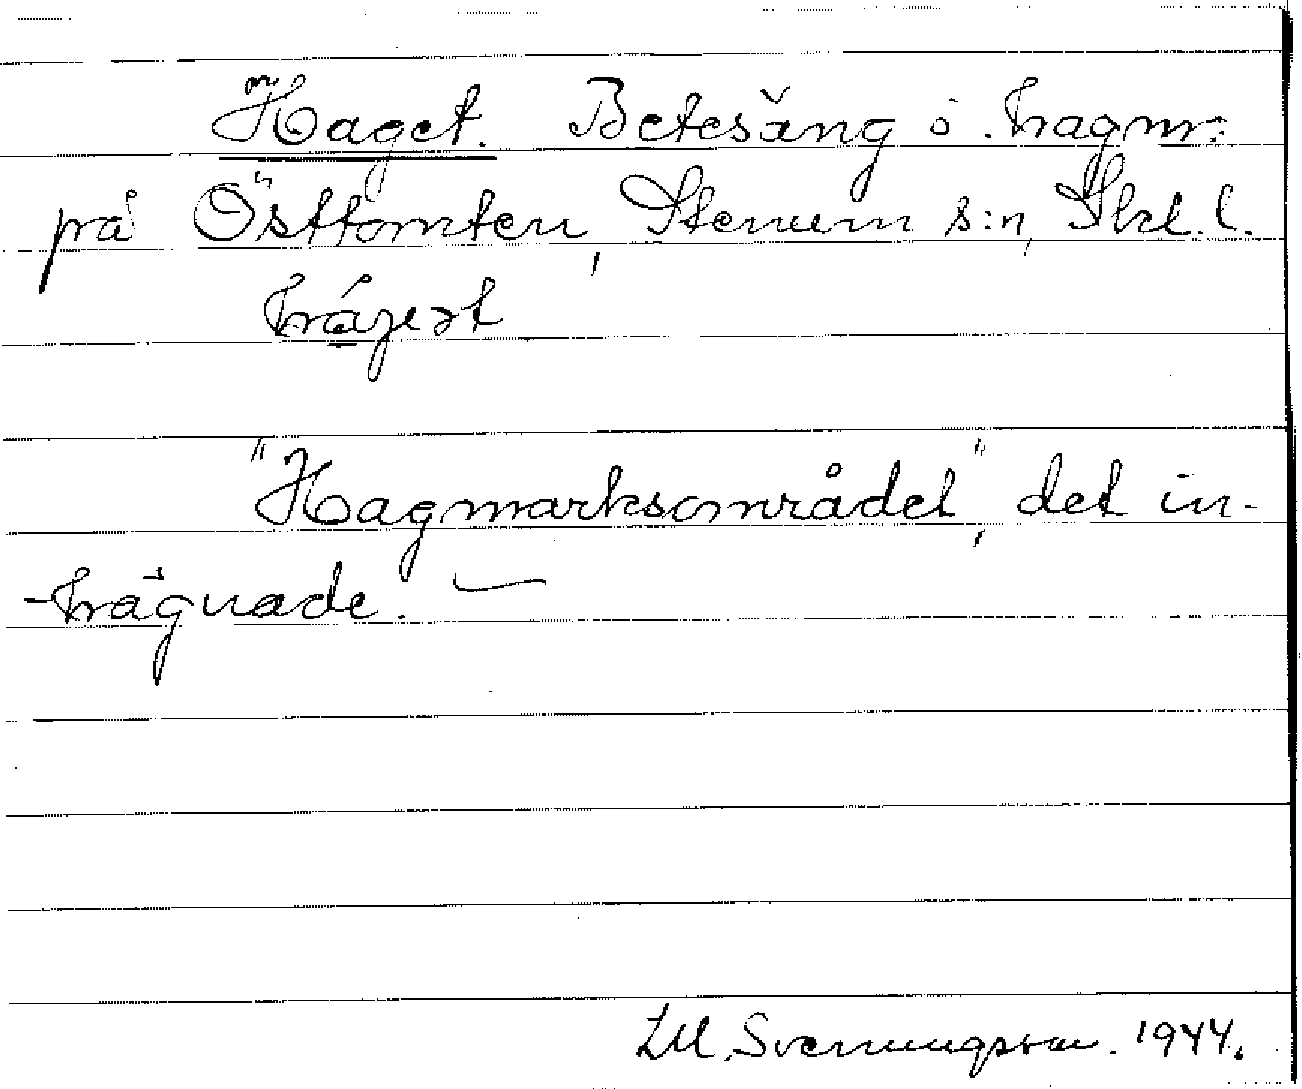 Haget. Betesäng å hagmr:
på Östtomten, Stenum s:n, Skl. l.
hágət
"Hagmarksområdet", det in-
-hägnade. —
LM. Svenungsson. 1944.